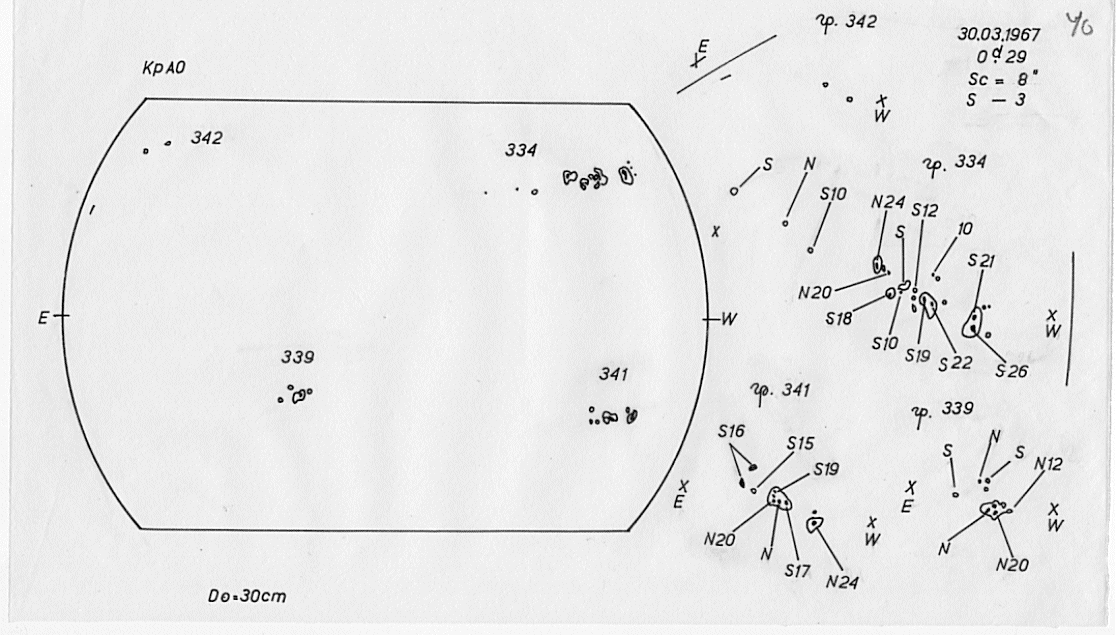 40
гр. 342
30.03.1967
0ᵈ.29
Sc = 8"
S — 3
КрАО
E
X
X
W
342
334
E
W
339
341
D⊙=30cm
гр. 334
S
N
S10
N24
S12
S
10
S21
X
N20
S18
S10
S19
S22
S26
X
W
гр. 341
S16
S15
S19
X
E
N20
N
S17
N24
X
W
гр. 339
S
N
S
N12
X
E
N
N20
X
W